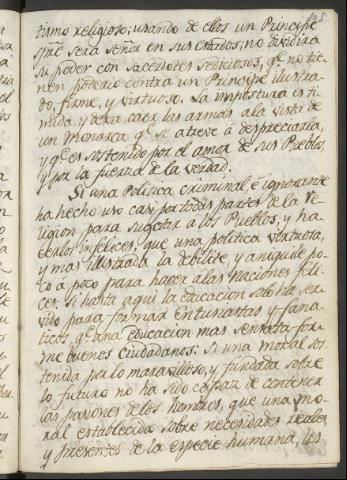 tismo religioso; usando de ellos un Principe
qne. será señor en sus estados; no dividirá
su poder con sacerdotes sediciosos, qe. no tie-
nen poderio contra un Principe ilustra-
do, firme, y virtuoso. La impostura es ti-
mida, y deja caer las armas ala vista de
un Monarca qe. se atreve á despreciarla,
y qe. es sostenido por el amor de sus Pueblos
y por la fuerza de la verdad.
Si una Politica criminal, é ignorante
ha hecho uso casi por todas partes de la Re-
ligion para sugetar á los Pueblos, y ha-
cerlos infelices, que una politica virtuosa,
y mas ilustrada la debilite y aniquile po-
co á poco para hacer alas Naciones feli-
ces: si hasta aqui la educacion solo ha ser-
vido para formar entusiastas y fana-
ticos, qe. una educacion mas sensata for-
me buenos ciudadanos: Si una moral sos-
tenida por lo maravilloso, y fundada sobre
lo futuro no ha sido capaz de contener
las pasiones de los hombres, que una mo-
ral establecida sobre necesidades reales,
y presentes de la especie humana, les